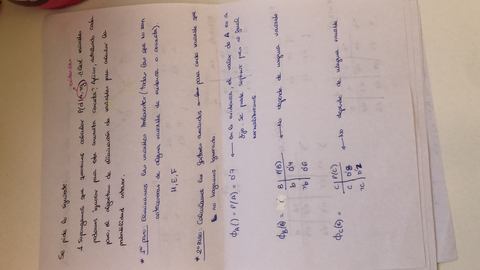 Se pide lo siguiente:
1. Supongamos que queremos calcular P(d|a, ¬g) ¿Qué variables
podemos ignorar para esta consulta concreta? Aplicar,
paso, el algoritmo de eliminación de variables para calcular la
probabilidad anterior.
* 1er paso: Eliminamos las variables irrelevantes (todas las que no son
antecesores de alguna variable de evidencia o consulta).
H, E, F
* 2º paso: Calculamos los factores asociados para cada variable que
no hayamos ignorado
ϕA() = P(A) = 0'7 ← en la evidencia, el valor de A es
fijo
normalizaremos
ϕB(B) = B P(B) ← No depende de ninguna variable
b 0'4
¬b 0'6
ϕC(C) = C P(C) ← No depende de ninguna variable
c 0'8
¬c 0'2